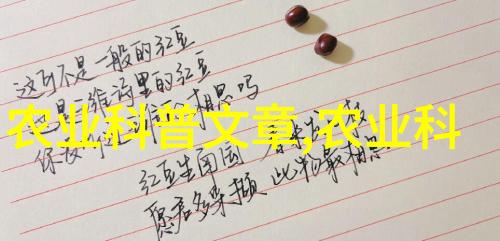 这可不是一般的红豆
是维诗里的红豆
相思吗
农业科普文章,农业科
红豆生南国 春来发几枝
愿君多采撷 此物最相思